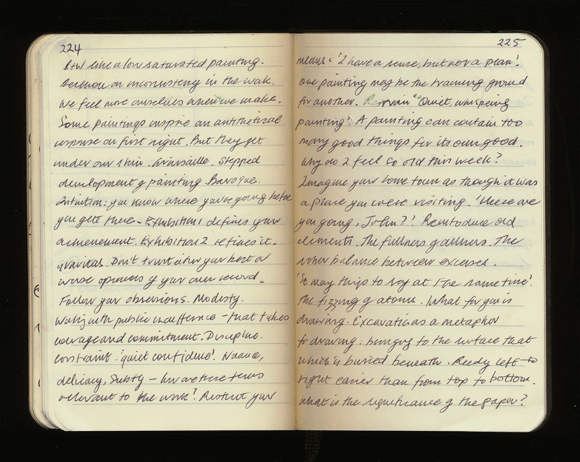 224
But like a low saturated painting.
on inconsistency in the work.
We feel more ourselves when we make.
Some paintings inspire an antithetical
response on first sight. But they get
under our skin. Grisaille. Stepped
development of painting. Baroque.
Intuition: you know where you're going before
you get there – Exhibition 1 defines your
achievement. Exhibition 2 refines it.
gravitas. Don't trust either your best or
worse opinions of your own record.
Follow your obsessions. Modesty.
Working with public indifference – that takes
courage and commitment. Discipline.
constraint. 'quiet confidence'. Nuance,
delicacy, subtlety – are these terms
relevant to the work? Restrict your
225
means. 'I have a sense, but not a plan'.
One painting may be the training ground
for another. 'Quiet, whispering
painting'. A painting can contain too
many good things for its own good.
Why do I feel so old this week?
Imagine your home town as though it was
a place you were visiting. 'Where are
you going, John?'. Reintroduce old
elements. The fullness of allness. The
balance between excesses.
'So many things to say at the same time'.
The fizzing of atoms. What for you is
drawing. Excavation as a metaphor
for drawing: bringing to the surface that
which is buried beneath. Reading left to
right easier than from top to bottom.
What is the significance of the paper?